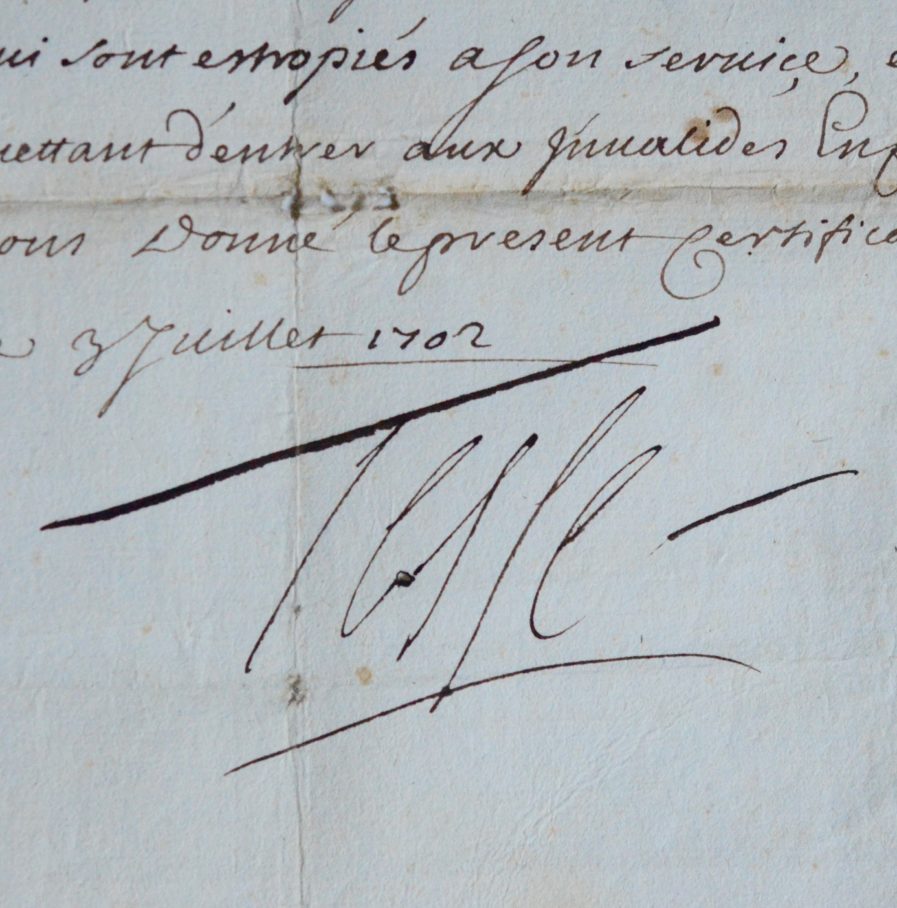 ui sont estropiés a son service, e
mettant d'entrer aux Jnualides En
ons Donné le present Certifica
3 Juillet 1702
Tessé